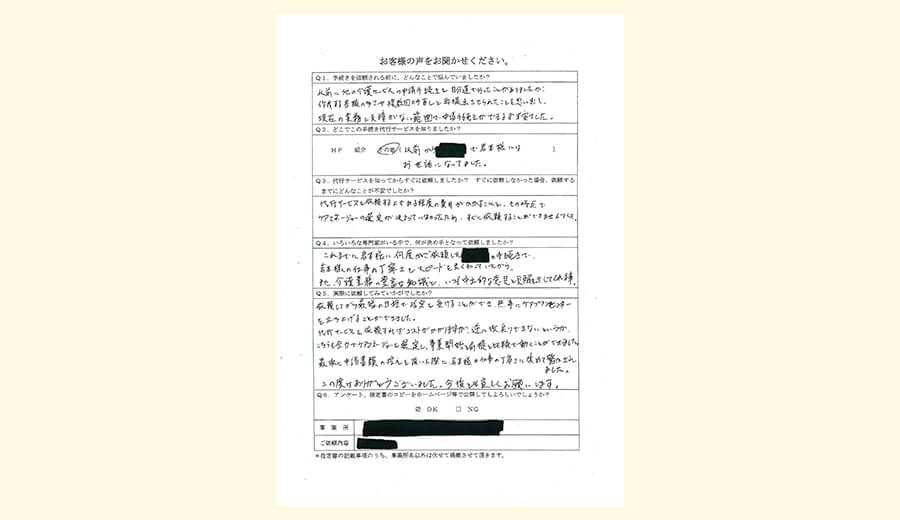 お客様の声をお聞かせください。
Q1．手続きを依頼される前に、どんなことで悩んでいましたか？
以前に他の介護サービスの申請手続きを
作成する書類の多さや複数回の
現在の業務に支障がない範囲で申請手続きができるか不安でした。
Q2．どこでこの手続き代行サービスを知りましたか？
HP 紹介 その他（以前から で 様には ）
お世話になってました。
Q3．代行サービスを知ってからすぐに依頼しましたか？ すぐに依頼しなかった場合、依頼する
までにどんなことが不安でしたか？
代行サービスを依頼する上である程度の費用がかかることと、その時点で
ケアマネージャーの選定が決まっていなかったため、すぐに依頼することができませんでした。
Q4．いろいろな専門家がいる中で、何が決め手となって依頼しましたか？
これまでに 様に何度かご依頼した の手続きで、
様の仕事の丁寧さとスピードをよくわっていたから。
また、介護業務の豊富な知識で、いつも
Q5．実際に依頼してみていかがでしたか？
依頼してから最短の日程で指定を受けることができ、無事にケアプランセンター
を立ち上げることができました。
代行サービスを依頼すればコストがかかりますが、逆に後戻りできないというか、
こちらも全力でケアマネージャーを選定し、事業開始を前提と目標で動くことができました。
最後に申請書類の控えを頂いた際に、 様の仕事の丁寧さに改めて驚かされ
ました。
この度はありがとうございました。今後とも宜しくお願いします。
Q6．アンケート、指定書のコピーをホームページ等で公開してもよろしいでしょうか？
☑ OK □ NG
事業所
ご依頼内容
＊指定書の記載事項のうち、事業所名以外は伏せて掲載させて頂きます。